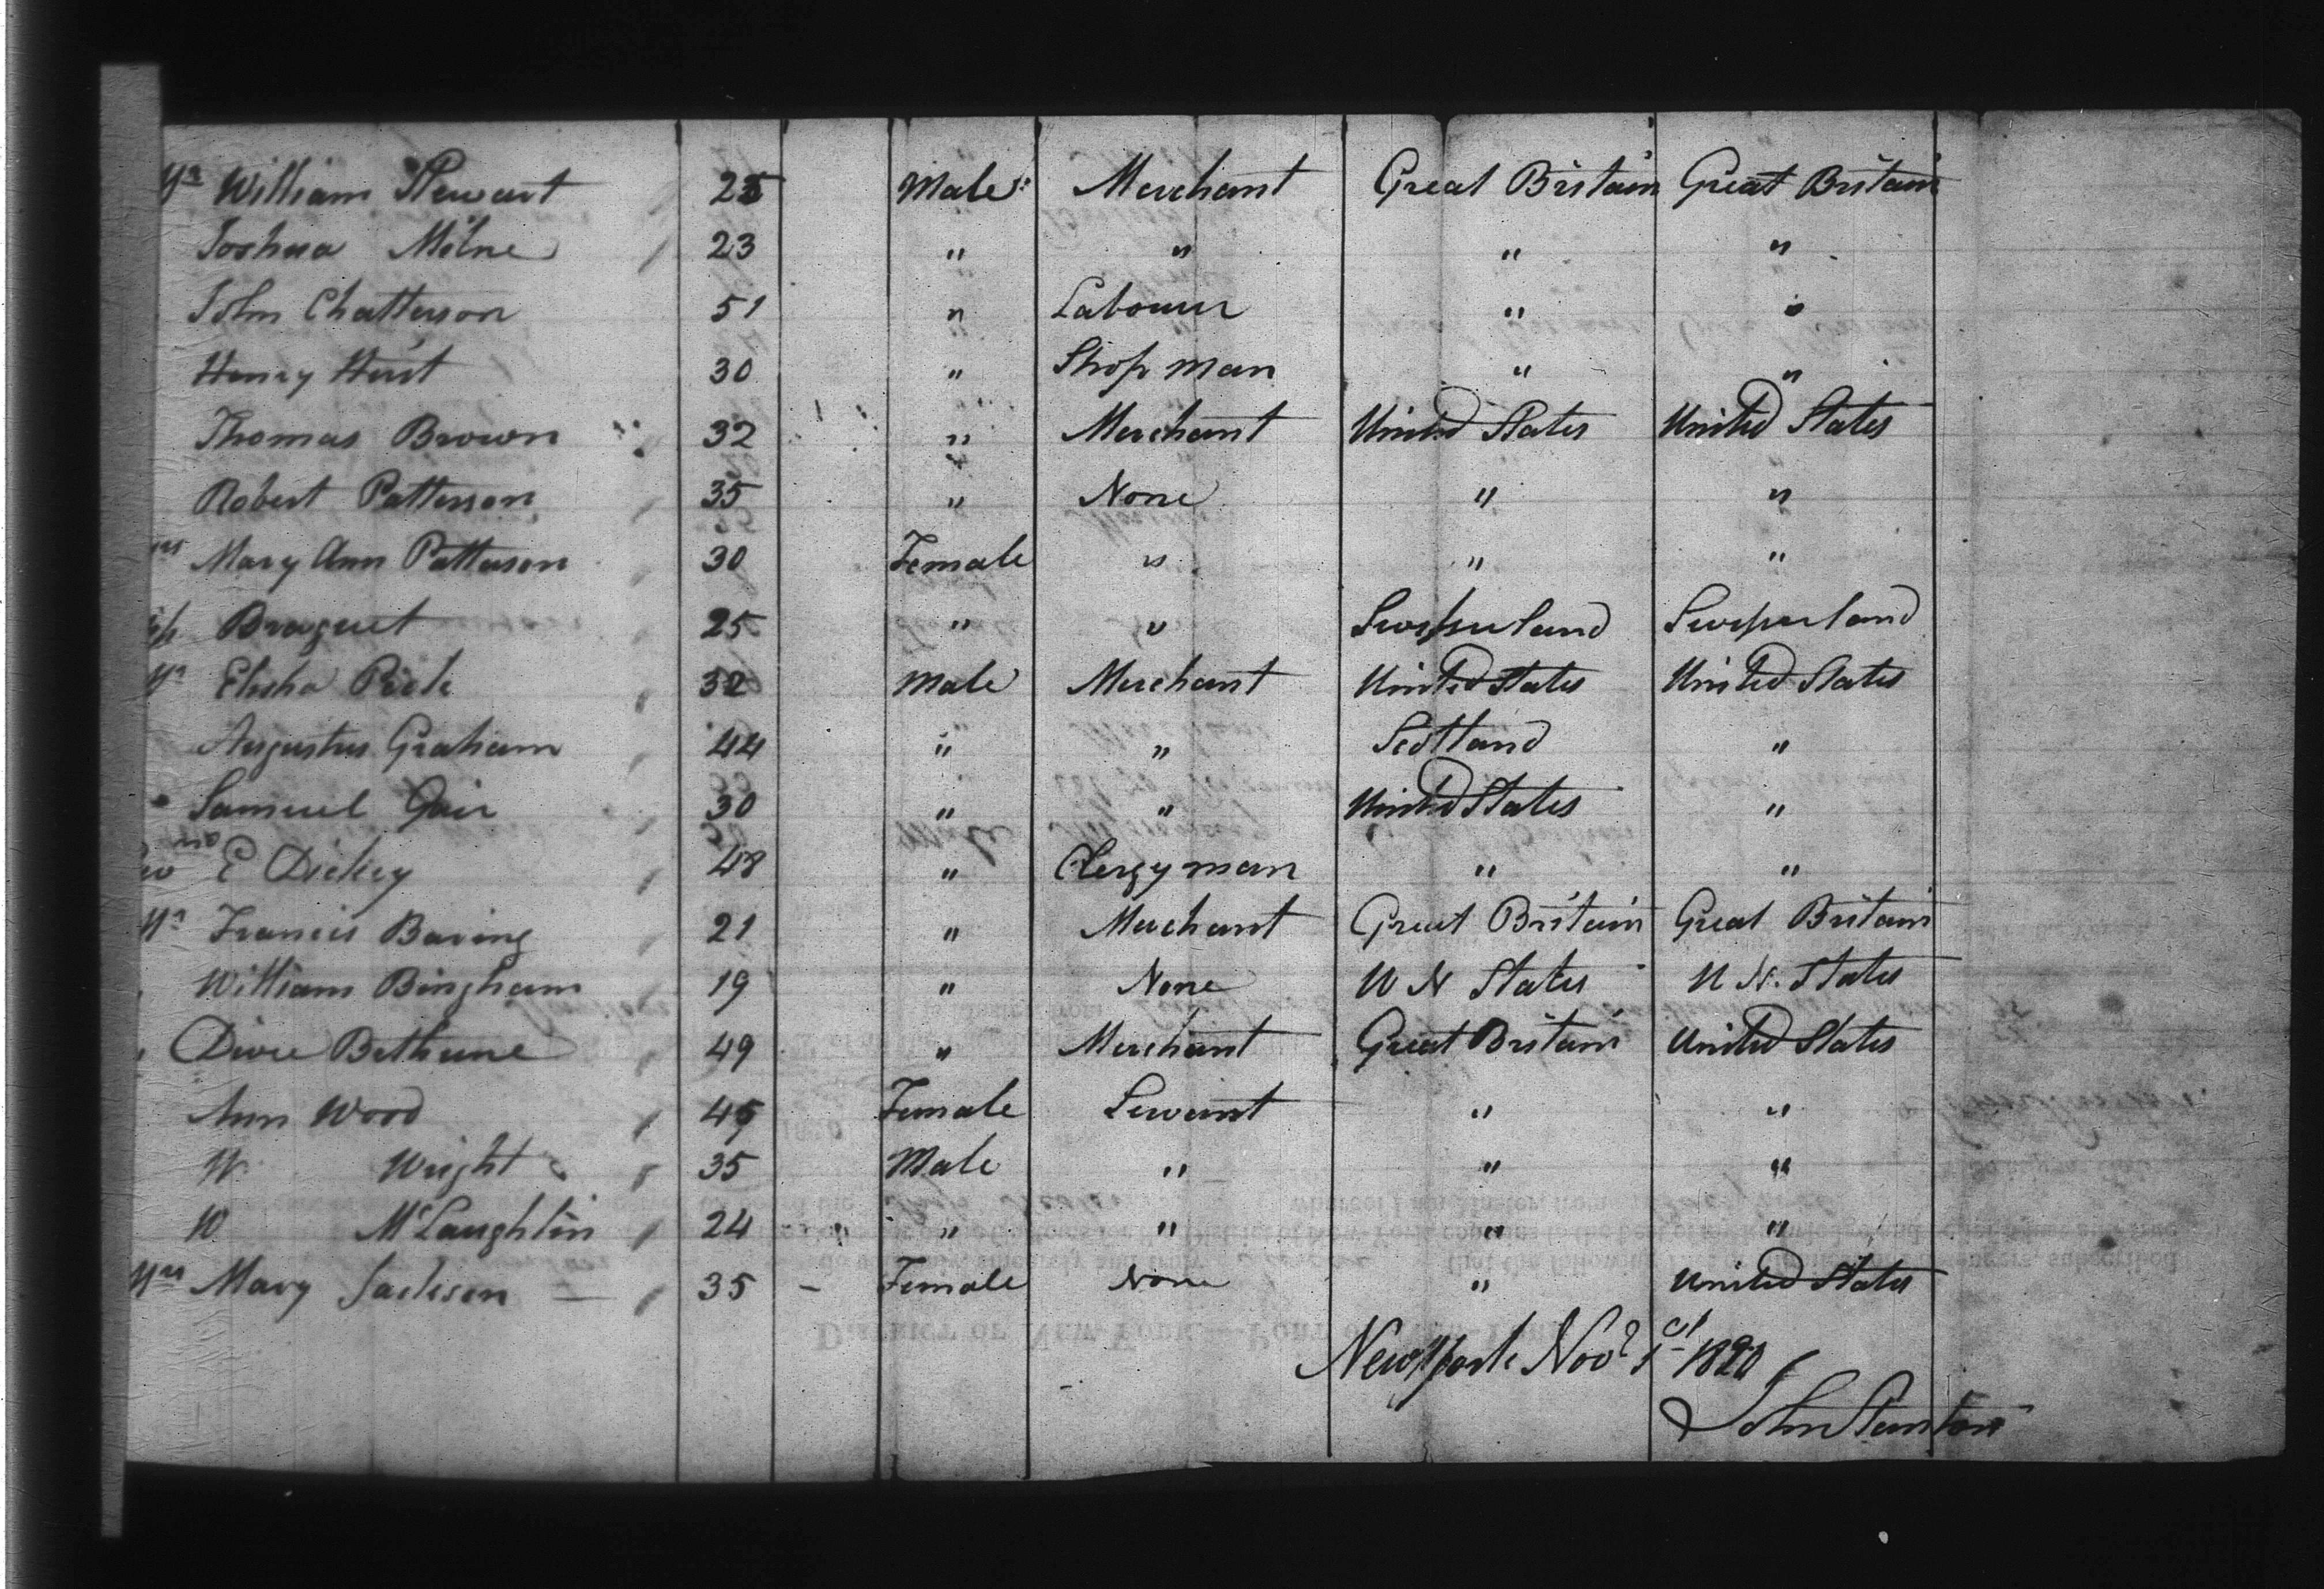 Mr William Stewart 25 Male Merchant Great Britain Great Britain
Joshua Milne 23 " " " "
John Chatterson 51 " Labourer " "
Henry Hurst 30 " Shop man " "
Thomas Brown 32 " Merchant United States United States
Robert Patterson 35 " None " "
Mary Ann Patterson 30 Female " " "
Braguet 25 " "
Mr Elisha 32 Male Merchant United States United States
Augustus Graham 44 " " Scotland "
Samuel Gair 30 " " United States "
E Dickey 48 " Clergyman " "
Mr Francis Baring 21 " Merchant Great Britain Great Britain
William Bingham 19 " None U N States U N. States
Divie Bethune 49 " Merchant Great Britain United States
Ann Wood 45 Female Servant " "
W Wright 35 Male " " "
W McLaughlin 24 " " " "
Mrs Mary Jackson — 35 – Female None " United States
New York Novr 1st 1820
John Stanton